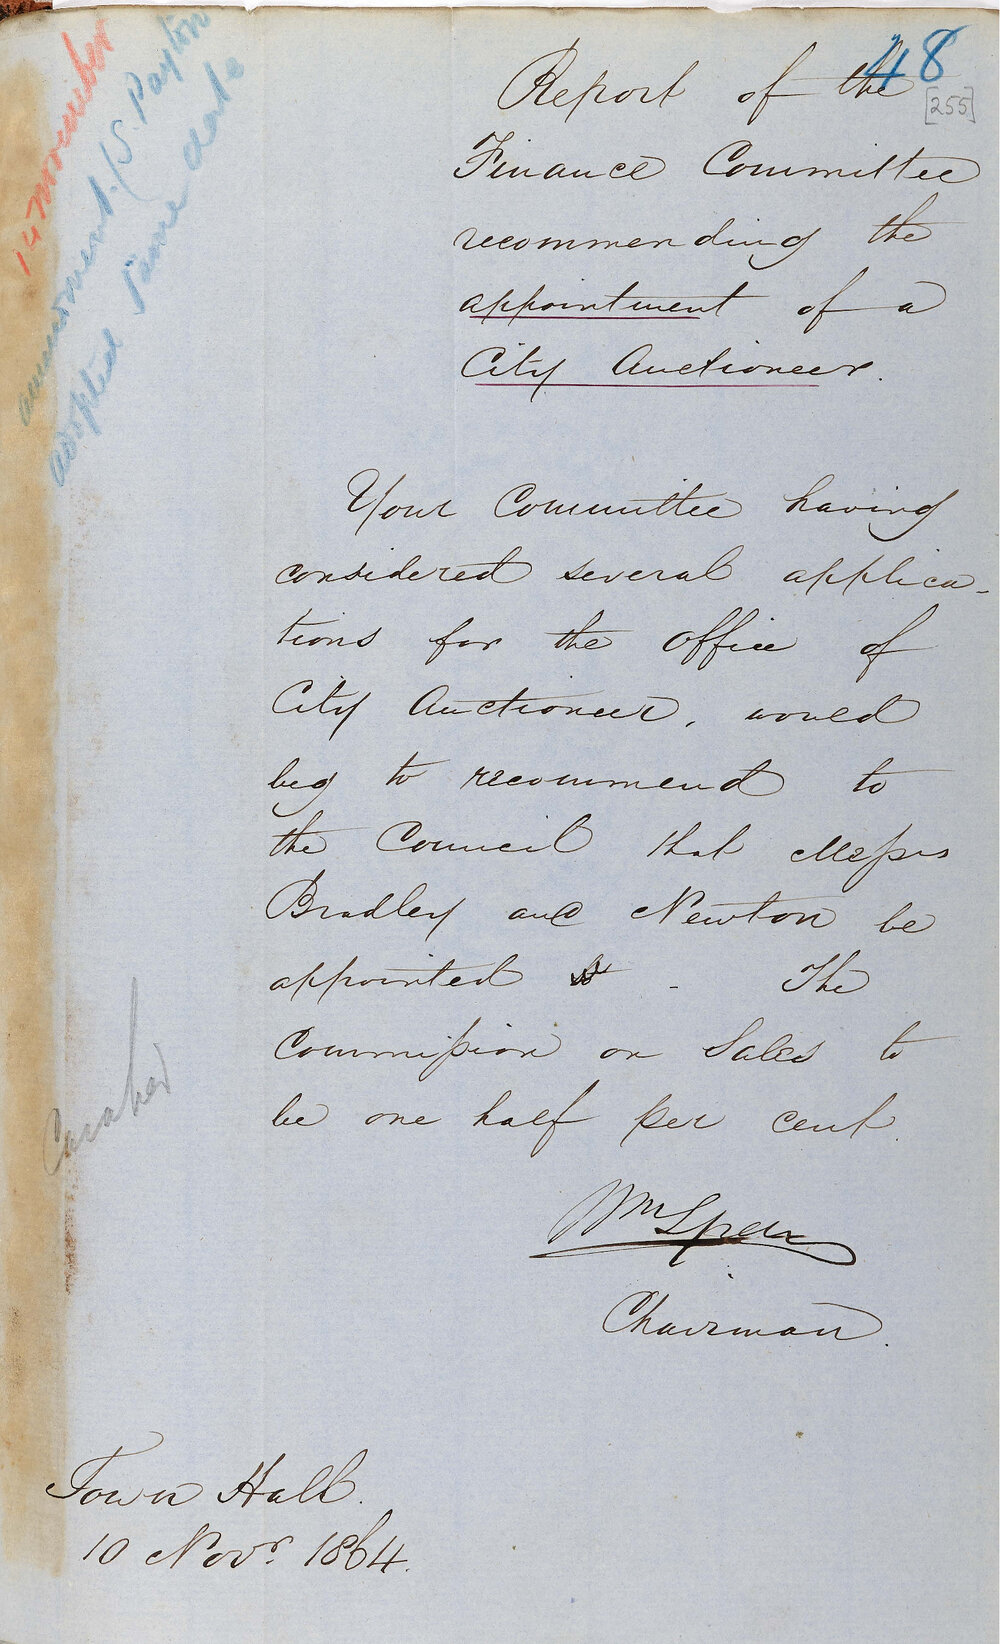 48
[255]
14 November
amendment. (S. Payton
adopted same date
Report of the
Finance Committee
recommending the
appointment of a
City Auctioneer.
Your Committee having
considered several applica-
tions for the office of
City Auctioneer, would
beg to recommend to
the Council that Messrs
Bradley and Newton be
appointed - The
Commission on Sales to
be one half per cent.
Caraher
Wm Speer
Chairman.
Town Hall.
10 Novr. 1864.